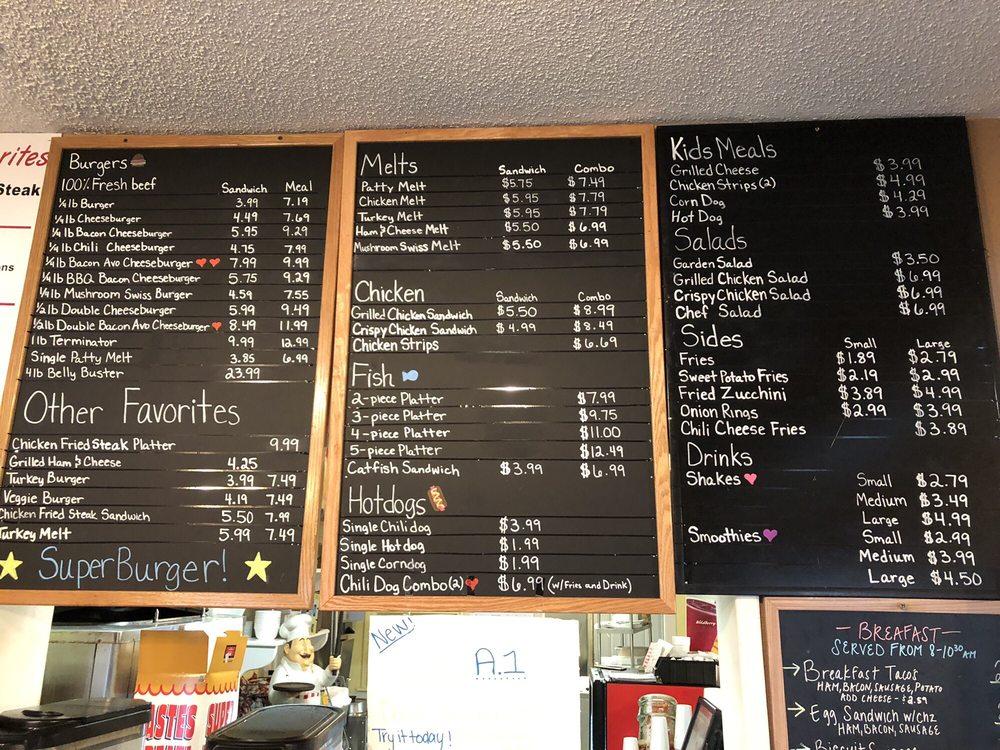 rites
Steak
ns
Burgers
100% Fresh beef Sandwich Meal
1/4 lb Burger 3.99 7.19
1/4 lb Cheeseburger 4.49 7.69
1/4 lb Bacon Cheeseburger 5.95 9.29
1/4 lb Chili Cheeseburger 4.75 7.99
1/4 lb Bacon Avo Cheeseburger 7.99 9.99
1/4 lb BBQ Bacon Cheeseburger 5.75 9.29
1/4 lb Mushroom Swiss Burger 4.59 7.55
1/2 lb Double Cheeseburger 5.99 9.49
1/2 lb Double Bacon Avo Cheeseburger 8.49 11.99
1 lb Terminator 9.99 12.99
Single Patty Melt 3.85 6.99
4 lb Belly Buster 23.99
Other Favorites
Chicken Fried Steak Platter 9.99
Grilled Ham & Cheese 4.25
Turkey Burger 3.99 7.49
Veggie Burger 4.19 7.49
Chicken Fried Steak Sandwich 5.50 7.99
Turkey Melt 5.99 7.49
SuperBurger!
Melts Sandwich Combo
Patty Melt $5.75 $7.49
Chicken Melt $5.95 $7.79
Turkey Melt $5.95 $7.79
Ham & Cheese Melt $5.50 $6.99
Mushroom Swiss Melt $5.50 $6.99
Chicken Sandwich Combo
Grilled Chicken Sandwich $5.50 $8.99
Crispy Chicken Sandwich $4.99 $8.49
Chicken Strips $6.69
Fish
2-piece Platter $7.99
3-piece Platter $9.75
4-piece Platter $11.00
5-piece Platter $12.49
Catfish Sandwich $3.99 $6.99
Hotdogs
Single Chilidog $3.99
Single Hotdog $1.99
Single Corndog $1.99
Chili Dog Combo(2) $6.99 (w/Fries and Drink)
Kids Meals
Grilled Cheese $3.99
Chicken Strips(2) $4.99
Corn Dog $4.29
Hot Dog $3.99
Salads
Garden Salad $3.50
Grilled Chicken Salad $6.99
Crispy Chicken Salad $6.99
Chef Salad $6.99
Sides Small Large
Fries $1.89 $2.79
Sweet Potato Fries $2.19 $2.99
Fried Zucchini $3.89 $4.99
Onion Rings $2.99 $3.99
Chili Cheese Fries $3.89
Drinks
Shakes Small $2.79
Medium $3.49
Large $4.99
Smoothies Small $2.99
Medium $3.99
Large $4.50
New!
A.1
Try it today!
ASTES SUPER
BREAFAST
SERVED FROM 8-10:30 AM
Breakfast Tacos
HAM, BACON, SAUSAGE, POTATO
ADD CHEESE - $2.59
Egg Sandwich w/chz
HAM, BACON, SAUSAGE
Biscuits